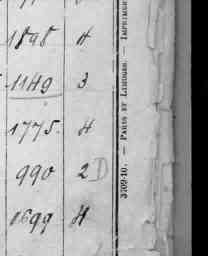 1898 4
1149 3
1775. 4
990 2 D
1699 4
3709-10. — PARIS ET LIMOGES. — IMPRIMER